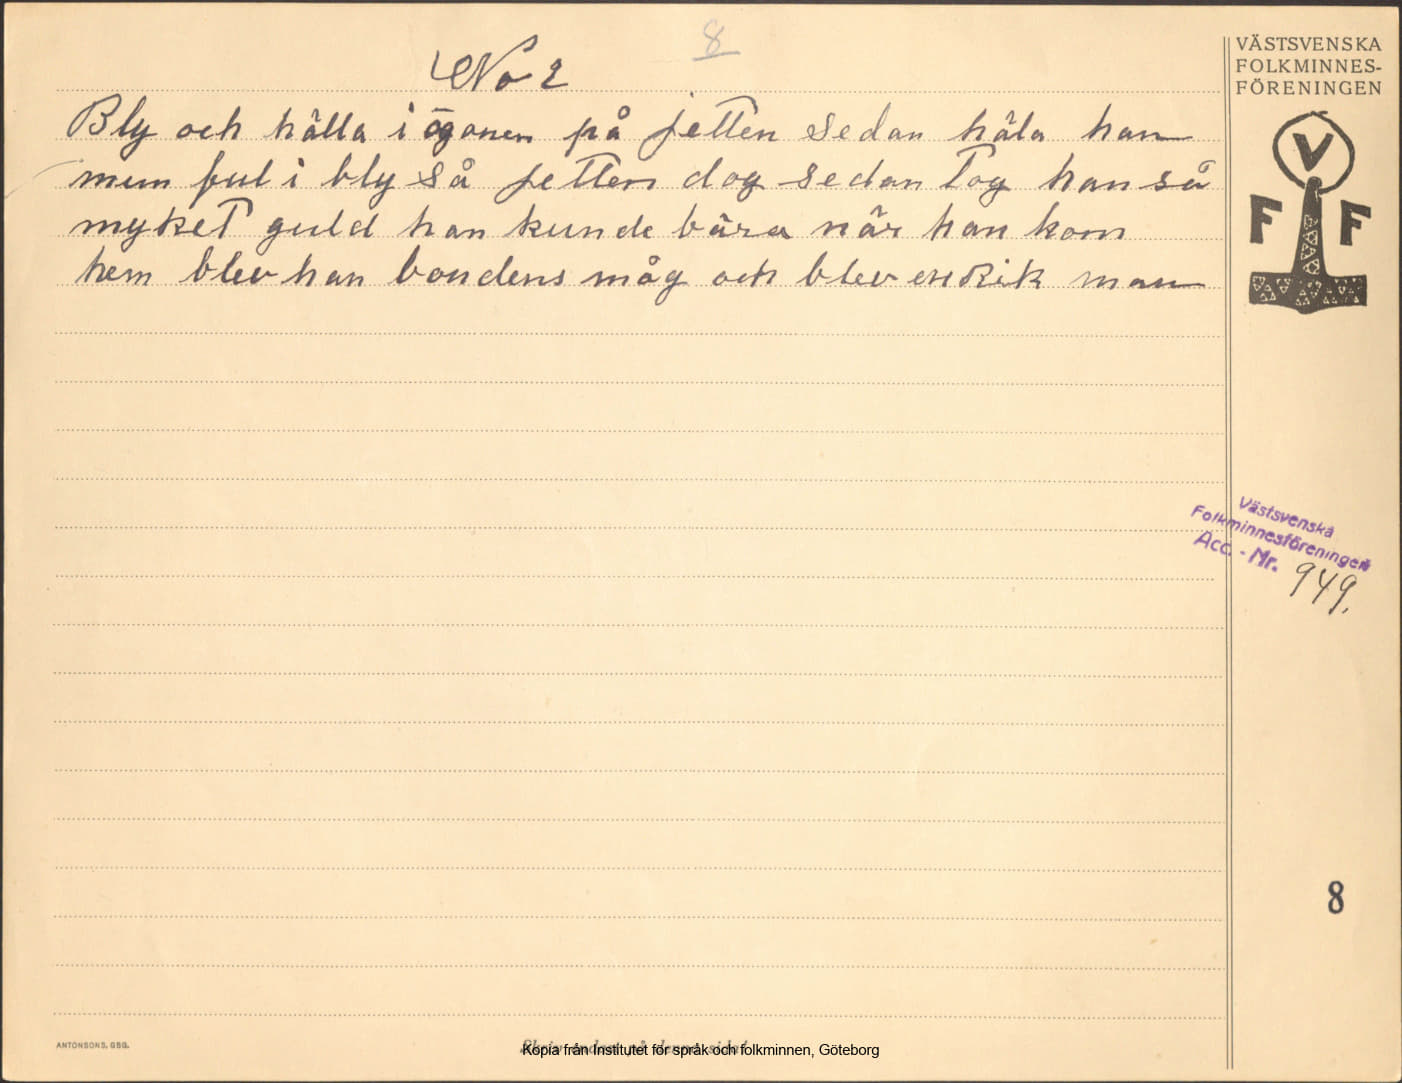 8
No 2
Bly och hälla i ögonen på jetten sedan häla han
mun ful i bly så jetten dog sedan tog han så
myket guld han kunde bära när han kom
hem blev han bondens måg och blev en Rik man
VÄSTSVENSKA
FOLKMINNES-
FÖRENINGEN
V
F F
Västsvenska
Folkminnesföreningen
Acc. - Nr. 949.
8
ANTONSONS, GBG.
Skriv endast på denna sida!
Kopia från Institutet för språk och folkminnen, Göteborg